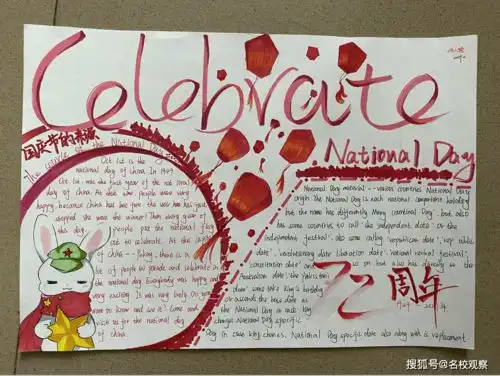 Celebrate
National Day
国庆节的来源
The couple of the National Day
Oct 1st is the
national day of China. In 1949
Oct 1st. was the first year of the national
day of China. At the
people were very
happy, because China has
the war has has just
stopped. She was the winner! Then every year of
this day, people put the national flag
out to celebrate. At the capital
of China - Peking, there is a
lot of people on parade and celebrate in
the national day. Everybody was happy and
very exciting. It was very lively. Do you
want to know and see it? Come and
visit us for the national day
of china.
National Day material -- various countries National Day
origin The National Day is each national important holiday
but the name has differently Many countries
Day, but also
has some countries to call "the independent date" or the
"Independency festival", also some calling "republican date", "republic
date", "revolutionary date" "liberation date" "national revival festival",
"constitution date" and
so on, but also has directly to the
"Australian date", "the pakistan
date" some take king's birthday
or ascends the throne date as
the National Day or each king
changes National Day specific
Day in case king changes, National Day specific date also along with is replacement
72周年
搜狐号@名校观察